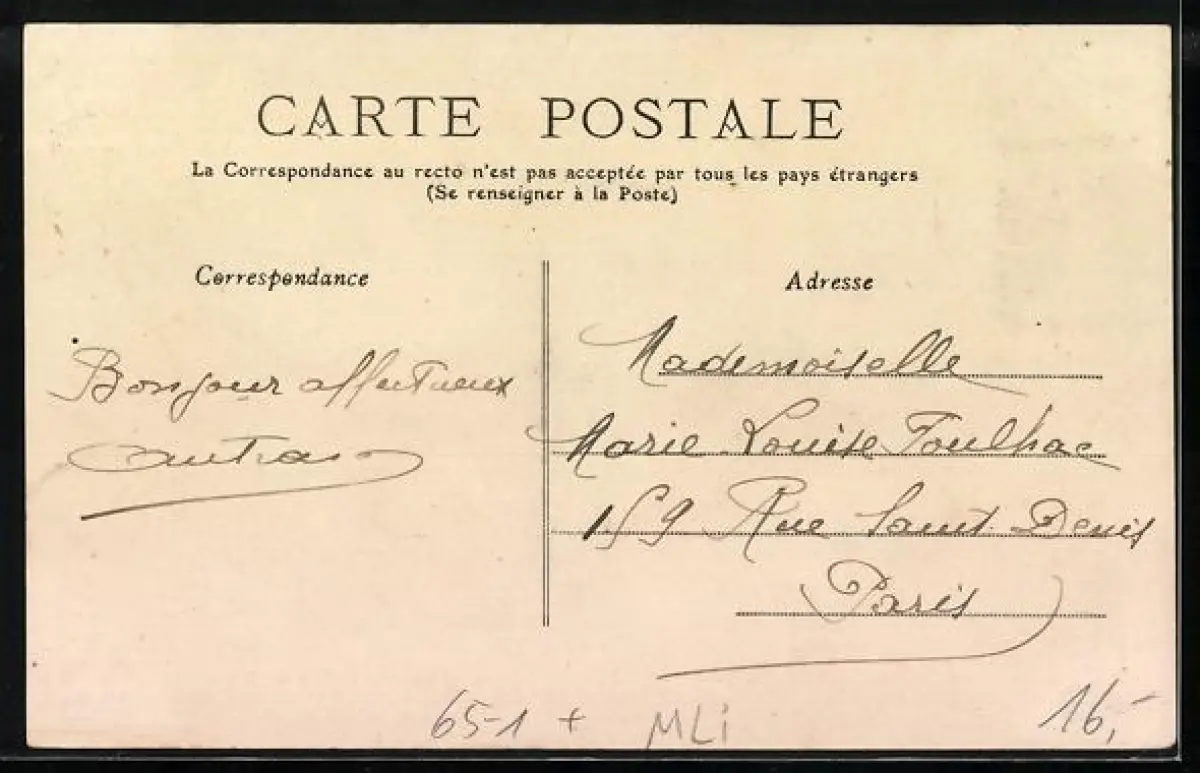 CARTE POSTALE
La Correspondance au recto n'est pas acceptée par tous les pays étrangers
(Se renseigner à la Poste)
Correspondance
Bonjour affectueux
Adresse
Mademoiselle
Marie Louise Foulhac
159 Rue Saint Denis
Paris
65-1 + MLi
16,-